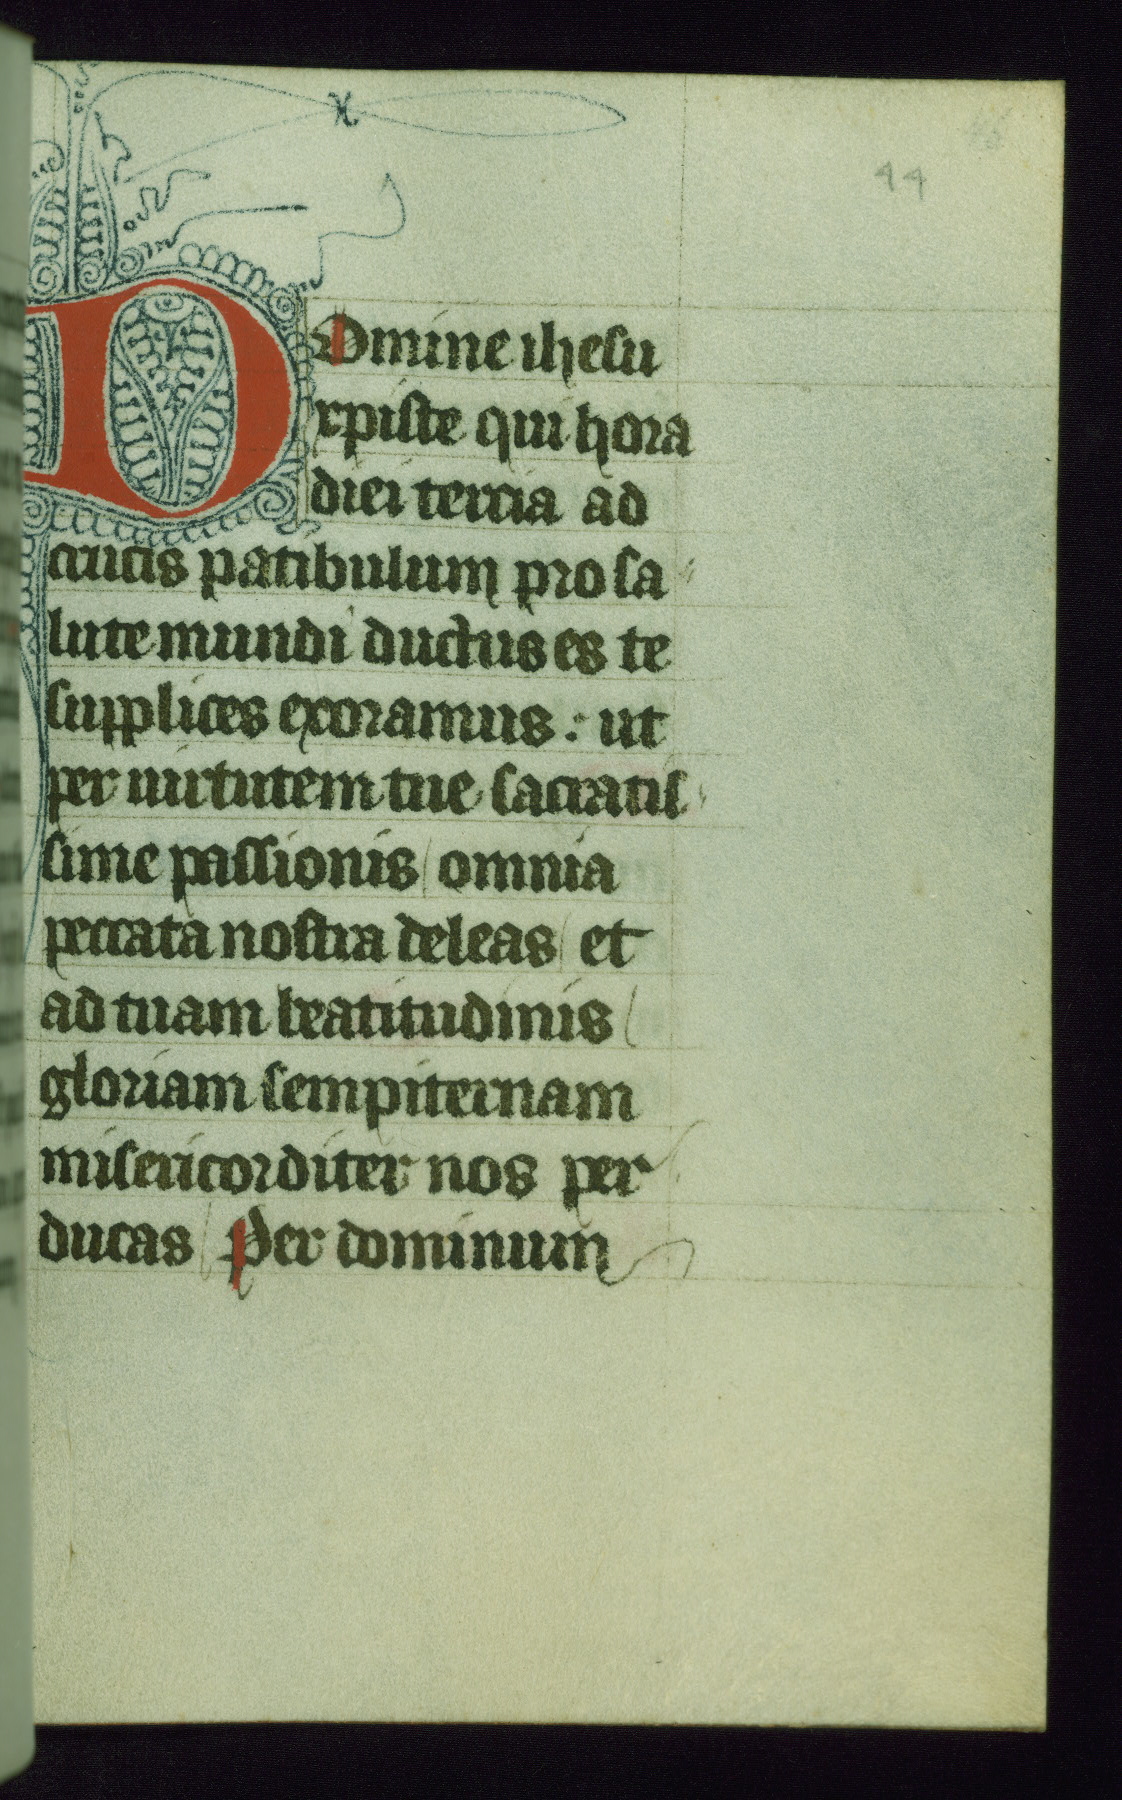 44
Domine ihesu
xpiste qui hora
diei tercia ad
crucis patibulum pro sa
lute mundi ductus es te
supplices exoramus : ut
per uirtutem tue sacratis
sime passionis omnia
peccata nostra deleas et
ad tuam beatitudinis
gloriam sempiternam
misericorditer nos per
ducas Per dominum